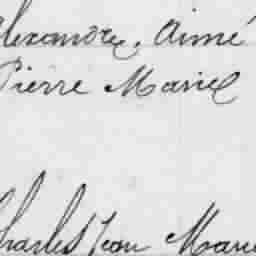 Alexandre, Aimé
Pierre Marie
Charles Jean Marie